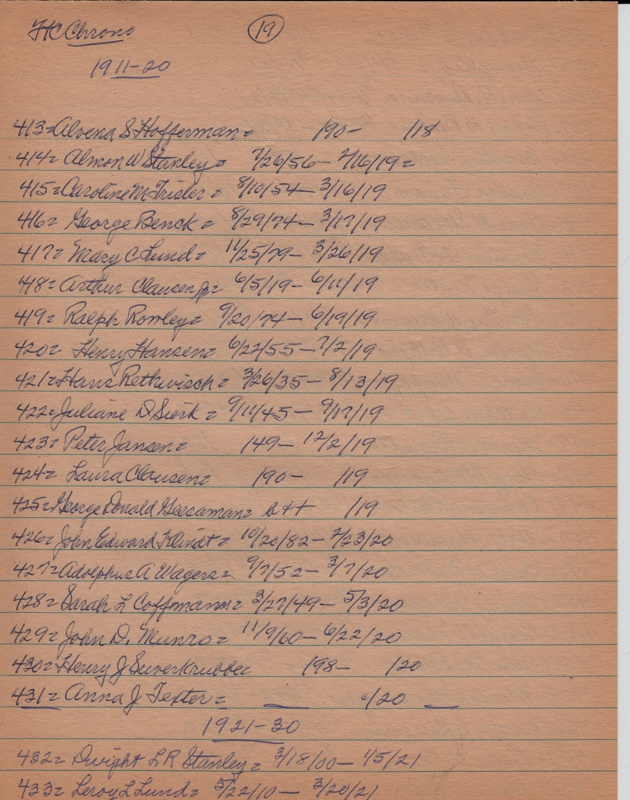 HC Chrono 19
1911-20
413= Alvena S Hofferman = 190- 118
414= Almon W Stanley = 7/26/56 - 2/16/19 =
415= Caroline M Trisler = 8/10/54 - 3/16/19
416= George Benck = 8/29/74 - 3/17/19
417= Mary C Lund = 11/25/79 - 3/26/19
418= Arthur Clausen Jr = 6/5/19 - 6/11/19
419= Ralph Rowley = 9/20/74 - 6/19/19
420= Henry Hansen = 6/22/55 - 7/2/19
421= Hans Rethwisch = 3/26/35 - 8/13/19
422= Juliane D Sierk = 9/11/45 - 9/17/19
423= Peter Jansen = 149 - 12/2/19
424= Laura Clausen = 190 - 119
425= George Donald = 119
426= John Edward Klindt = 10/20/82 - 2/23/20
427= Adolphus A Wagers = 9/7/52 - 3/7/20
428= Sarah L Coffmann = 3/27/49 - 5/3/20
429= John D. Munro = 11/9/60 - 6/22/20
430= Henry J Suverkrubbe 198 - 120
431= Anna J Texter = /20
1921-30
432= Dwight L R Stanley = 3/18/00 - 1/5/21
433= Leroy L Lund = 5/22/10 - 3/20/21